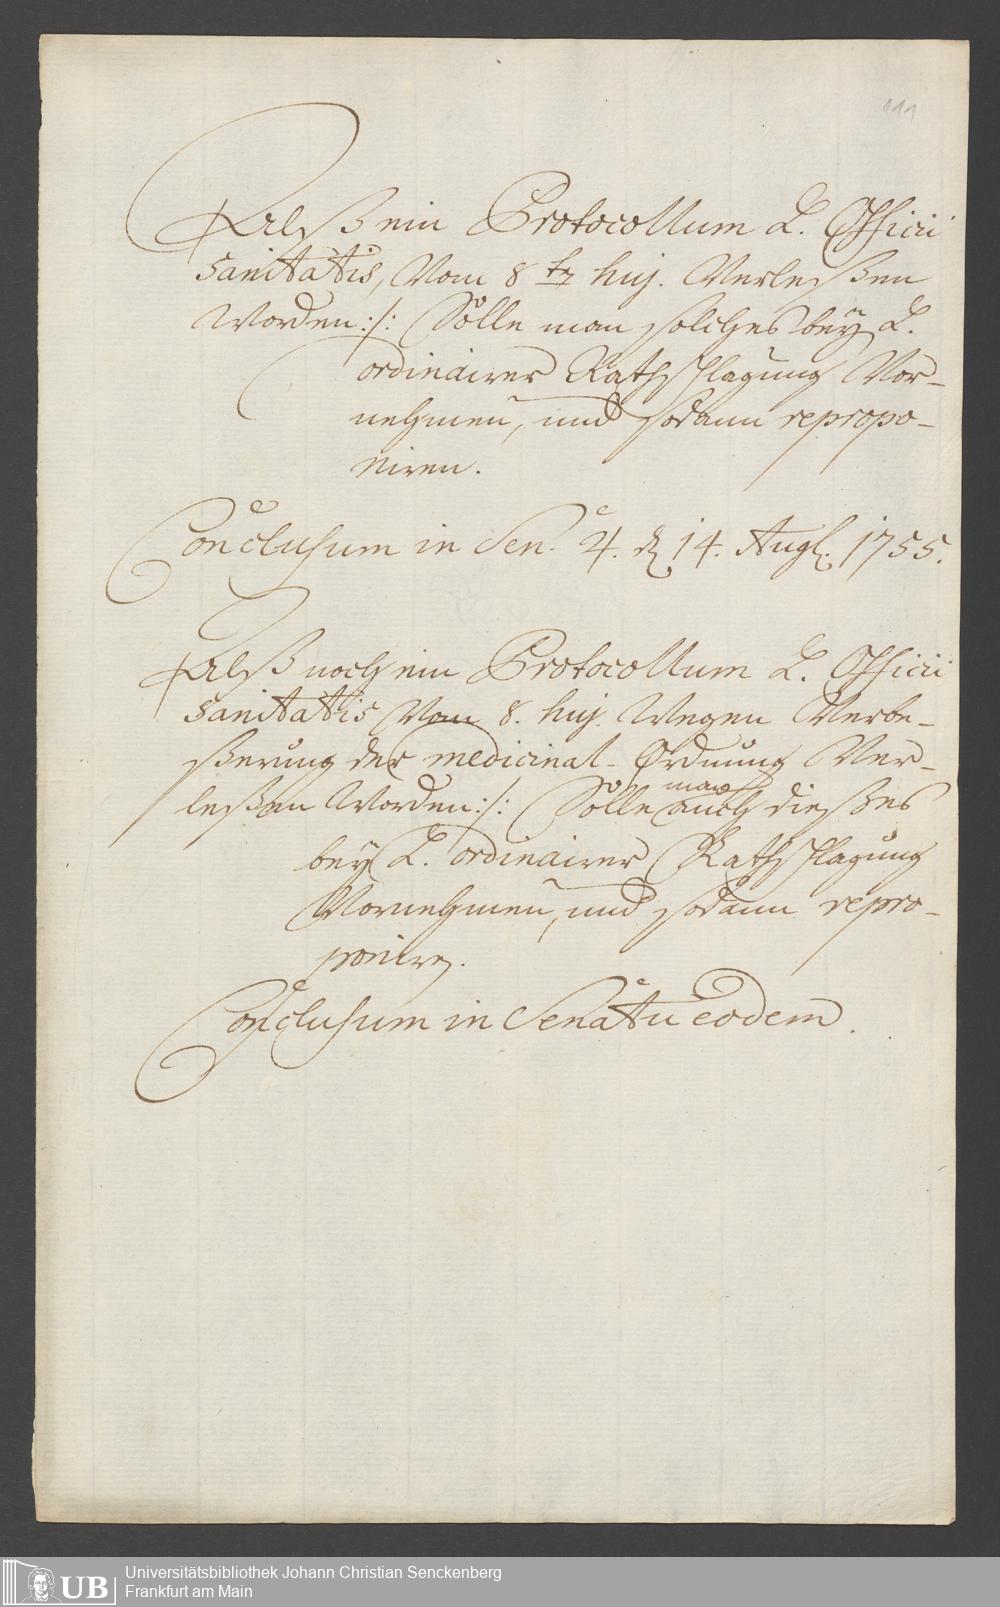 111
Als ein Protocollum L. Officii
Sanitatis, Vom 8ten huj. Verleßen
Worden :/: Solle man solches bey L.
ordinairer Rathschlagung Vor-
nehmen, und sodann repropo-
niren.
Conclusum in Sen. d. 14. Aug. 1755.
Alß noch ein Protocollum L. Officii
Sanitatis Vom 8. huj. Wegen Verbe-
ßerung der medicinal-Ordnung Ver-
leßen Worden :/: Solle man auch dießes
bey L. ordinairer Rathschlagung
Vornehmen, und sodann repro-
poniren.
Conclusum in Senatu eodem.
UB
Universitätsbibliothek Johann Christian Senckenberg
Frankfurt am Main